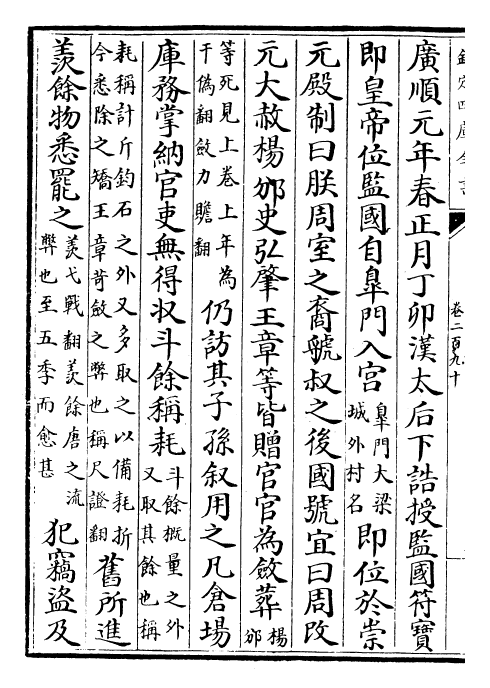 欽定四庫全書
卷二百九十
廣順元年春正月丁卯漢太后下誥授監國符寶
即皇帝位監國自臯門入宫臯門大梁城外村名即位於崇
元殿制曰朕周室之裔虢叔之後國號宜曰周改
元大赦楊邠史弘肇王章等皆贈官官為斂葬楊邠
等死見上卷上年為于偽翻斂力贍翻仍訪其子孫叙用之凡倉場
庫務掌納官吏無得收斗餘稱耗斗餘概量之外又取其餘也稱
耗稱計斤鈞石之外又多取之以備耗折今悉除之矯王章苛斂之弊也稱尺證翻舊所進
羡餘物悉罷之羡弋戰翻羡餘唐之流弊也至五季而愈甚犯竊盗及